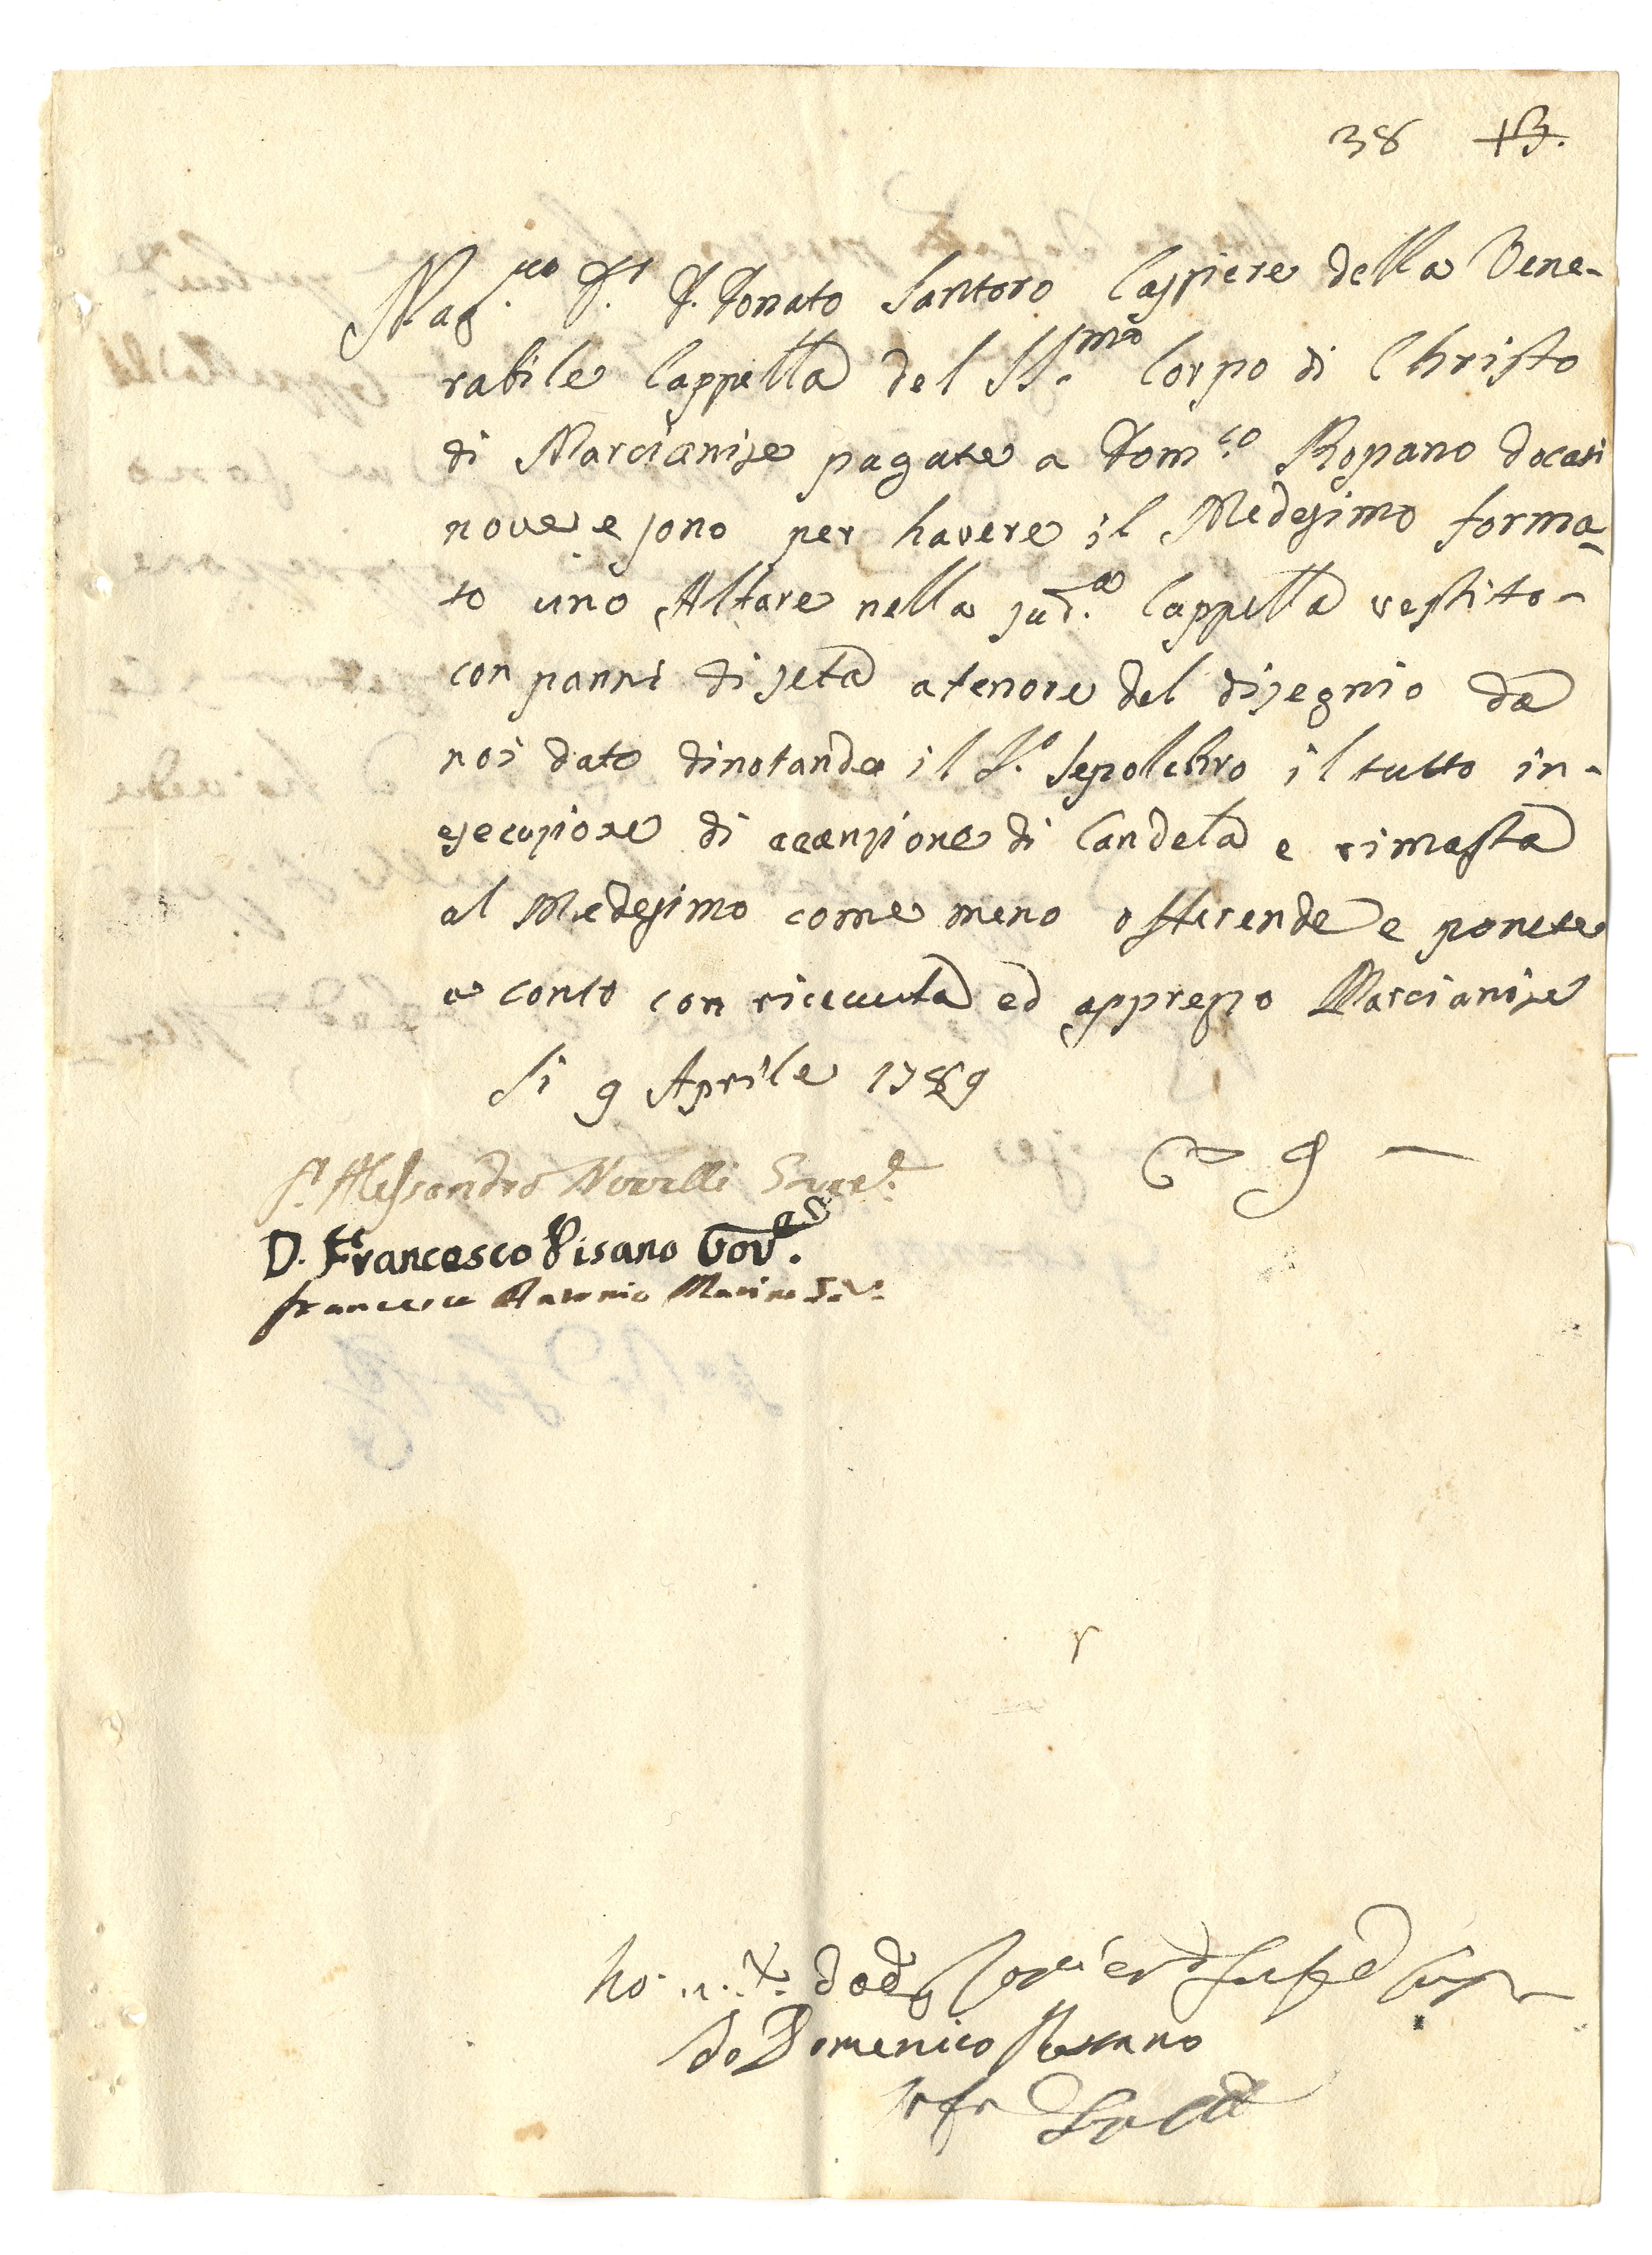 38 13.
Mag.co S.r D. Donato Santoro Cassiere della Vene-
rabile Cappella del SS.mo Corpo di Christo
di Marcianise pagate a Dom.co Rossano docati
nove e sono per havere il Medesimo forma-
to uno Altare nella sud.a Cappella vestito-
con panni di seta a tenore del disegnio da
noi dato dinotando il S.o Sepolchro il tutto in-
esecuzione di accenzione di Candela e rimasta
al Medesimo come meno offerende e ponete
a conto con ricevuta ed appresso Marcianise
li 9 Aprile 1789
D. Alessandro Novelli
D. Francesco Pisano Gov.re
Francesco Antonio Marino
9 —
Ho
Io Domenico Rossano